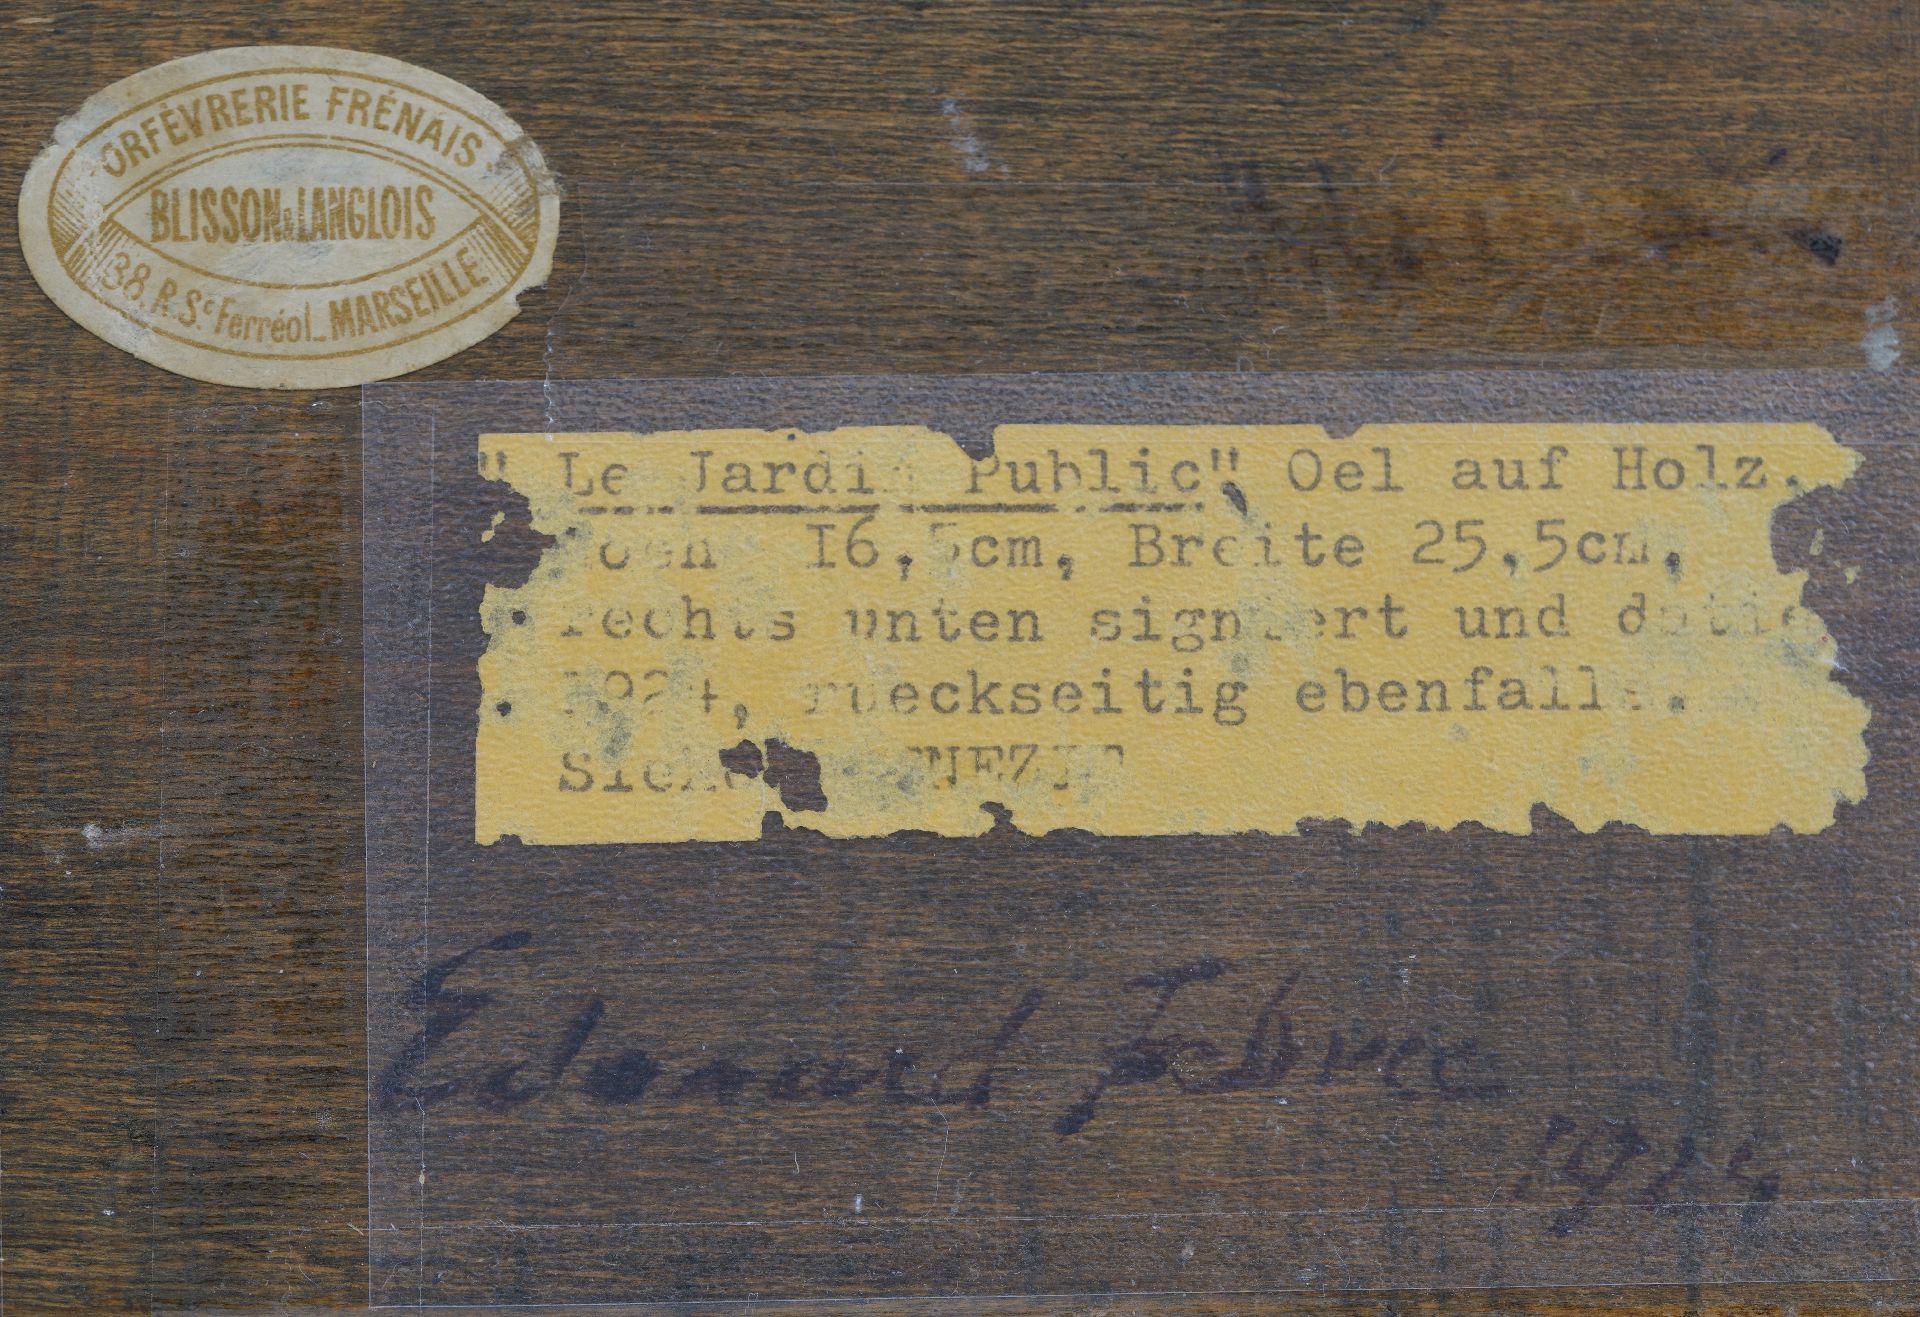 ORFÈVRERIE FRÉNAIS
BLISSON & LANGLOIS
38, R. St Ferréol_MARSEILLE
" Le Jardin Public" Oel auf Holz.
Hoehe 16,5cm, Breite 25,5cm,
rechts unten signiert und datie
1924, rueckseitig ebenfalls.
Siehe
Edouard Febvre
1924